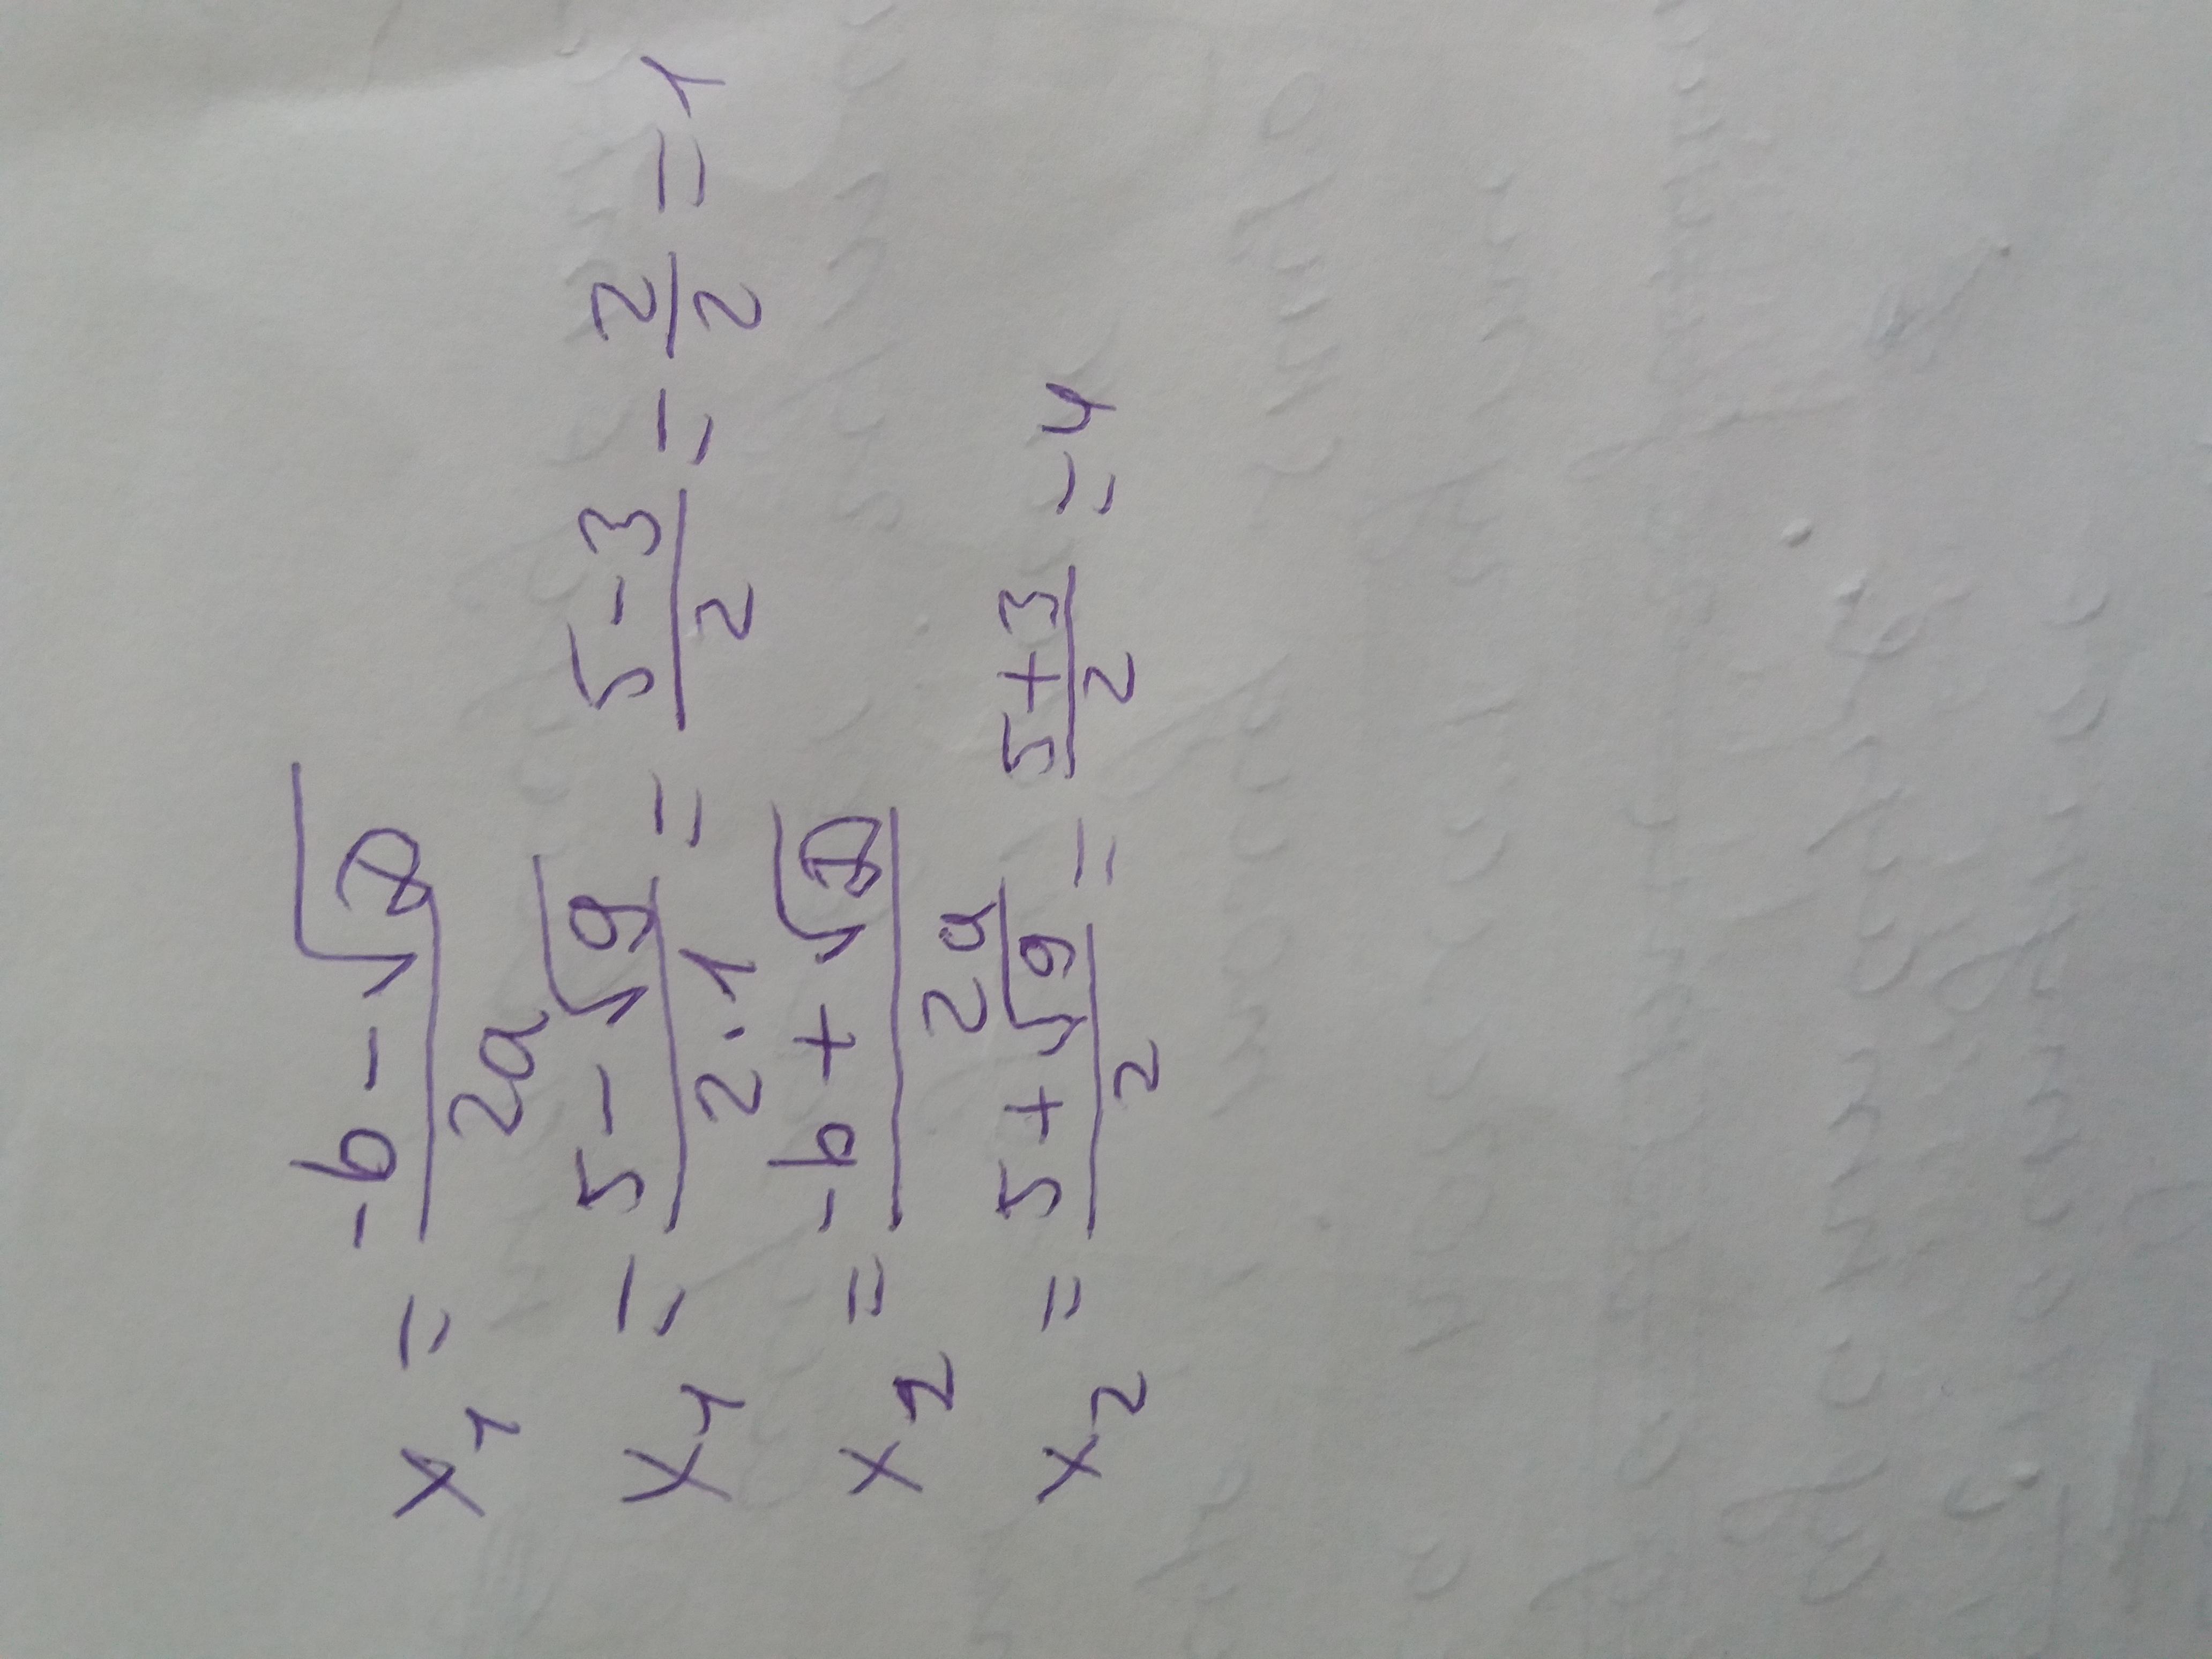 x₁ = (-b - √D)/(2a)
x₁ = (5 - √9)/(2·1) = (5-3)/2 = 2/2 = 1
x₂ = (-b + √D)/(2a)
x₂ = (5 + √9)/2 = (5+3)/2 = 4